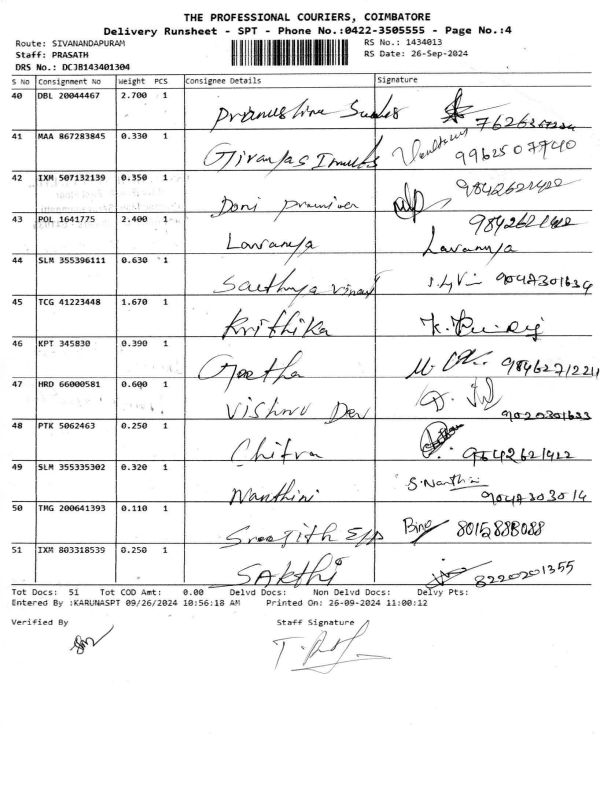 THE PROFESSIONAL COURIERS, COIMBATORE
Delivery Runsheet - SPT - Phone No.:0422-3505555 - Page No.:4
Route: SIVANANDAPURAM RS No.: 1434013
Staff: PRASATH RS Date: 26-Sep-2024
DRS No.: DCJB143401304
S No Consignment No Weight PCS Consignee Details Signature
40 DBL 20044467 2.700 1
41 MAA 867283845 0.330 1 9962507740
42 IXM 507132139 0.350 1 9842621422
43 POL 1641775 2.400 1 Lavanya Lavanya 9842621422
44 SLM 355396111 0.630 1 Sathya
45 TCG 41223448 1.670 1 Krithika
46 KPT 345830 0.390 1 Geetha
47 HRD 66000581 0.600 1 Vishnu Dev 9020301633
48 PTK 5062463 0.250 1 Chitra 9842621422
49 SLM 355335302 0.320 1 Nanthini S. Nanthini 9047303014
50 TMG 200641393 0.110 1 Sreejith
51 IXM 803318539 0.250 1 SAKTHI 8220201355
Tot Docs: 51 Tot COD Amt: 0.00 Delvd Docs: Non Delvd Docs: Delvy Pts:
Entered By :KARUNASPT 09/26/2024 10:56:18 AM Printed On: 26-09-2024 11:00:12
Verified By Staff Signature